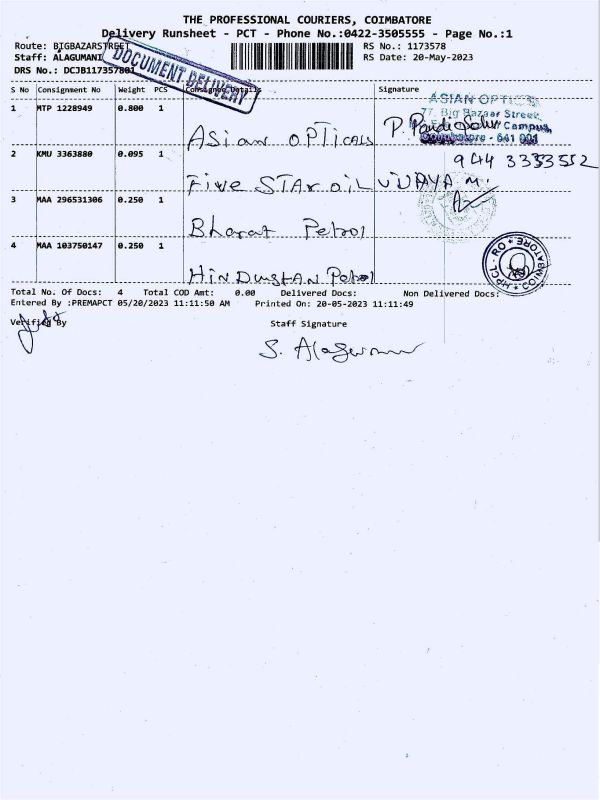 THE PROFESSIONAL COURIERS, COIMBATORE
Delivery Runsheet - PCT - Phone No.:0422-3505555 - Page No.:1
Route: BIGBAZARSTREET
RS No.: 1173578
Staff: ALAGUMANI
RS Date: 20-May-2023
DRS No.: DCJB117357801
DOCUMENT DELIVERY
S No Consignment No Weight PCS Consignee Details Signature
1 MTP 1228949 0.800 1 Asian OPTicals P.
ASIAN OPTICALS
77, Big Bazaar Street,
Campus,
Coimbatore - 641 001
2 KMU 3363880 0.095 1 Five STAR OIL VIJAYA M.
3 MAA 296531306 0.250 1 Bharat Petrol
4 MAA 103750147 0.250 1 HINDUSTAN Petrol
HPCL-RO * COIMBATORE *
Total No. Of Docs: 4 Total COD Amt: 0.00 Delivered Docs: Non Delivered Docs:
Entered By :PREMAPCT 05/20/2023 11:11:50 AM Printed On: 20-05-2023 11:11:49
Verified By Staff Signature